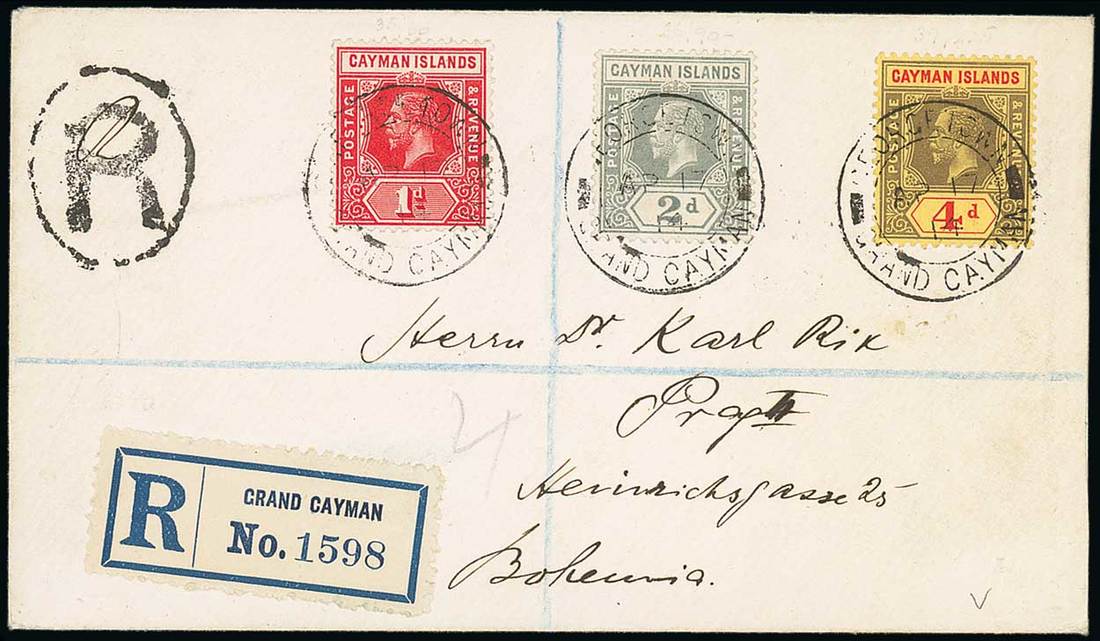 R
CAYMAN ISLANDS
POSTAGE & REVENUE
1d
CAYMAN ISLANDS
POSTAGE & REVENUE
2d
CAYMAN ISLANDS
POSTAGE & REVENUE
4d
GRAND CAYMAN
GRAND CAYMAN
17
14
GRAND CAYMAN
Herrn Dr. Karl Rix
Prag II
Heinrichsgasse 25
Bohemia.
R
GRAND CAYMAN
No. 1598